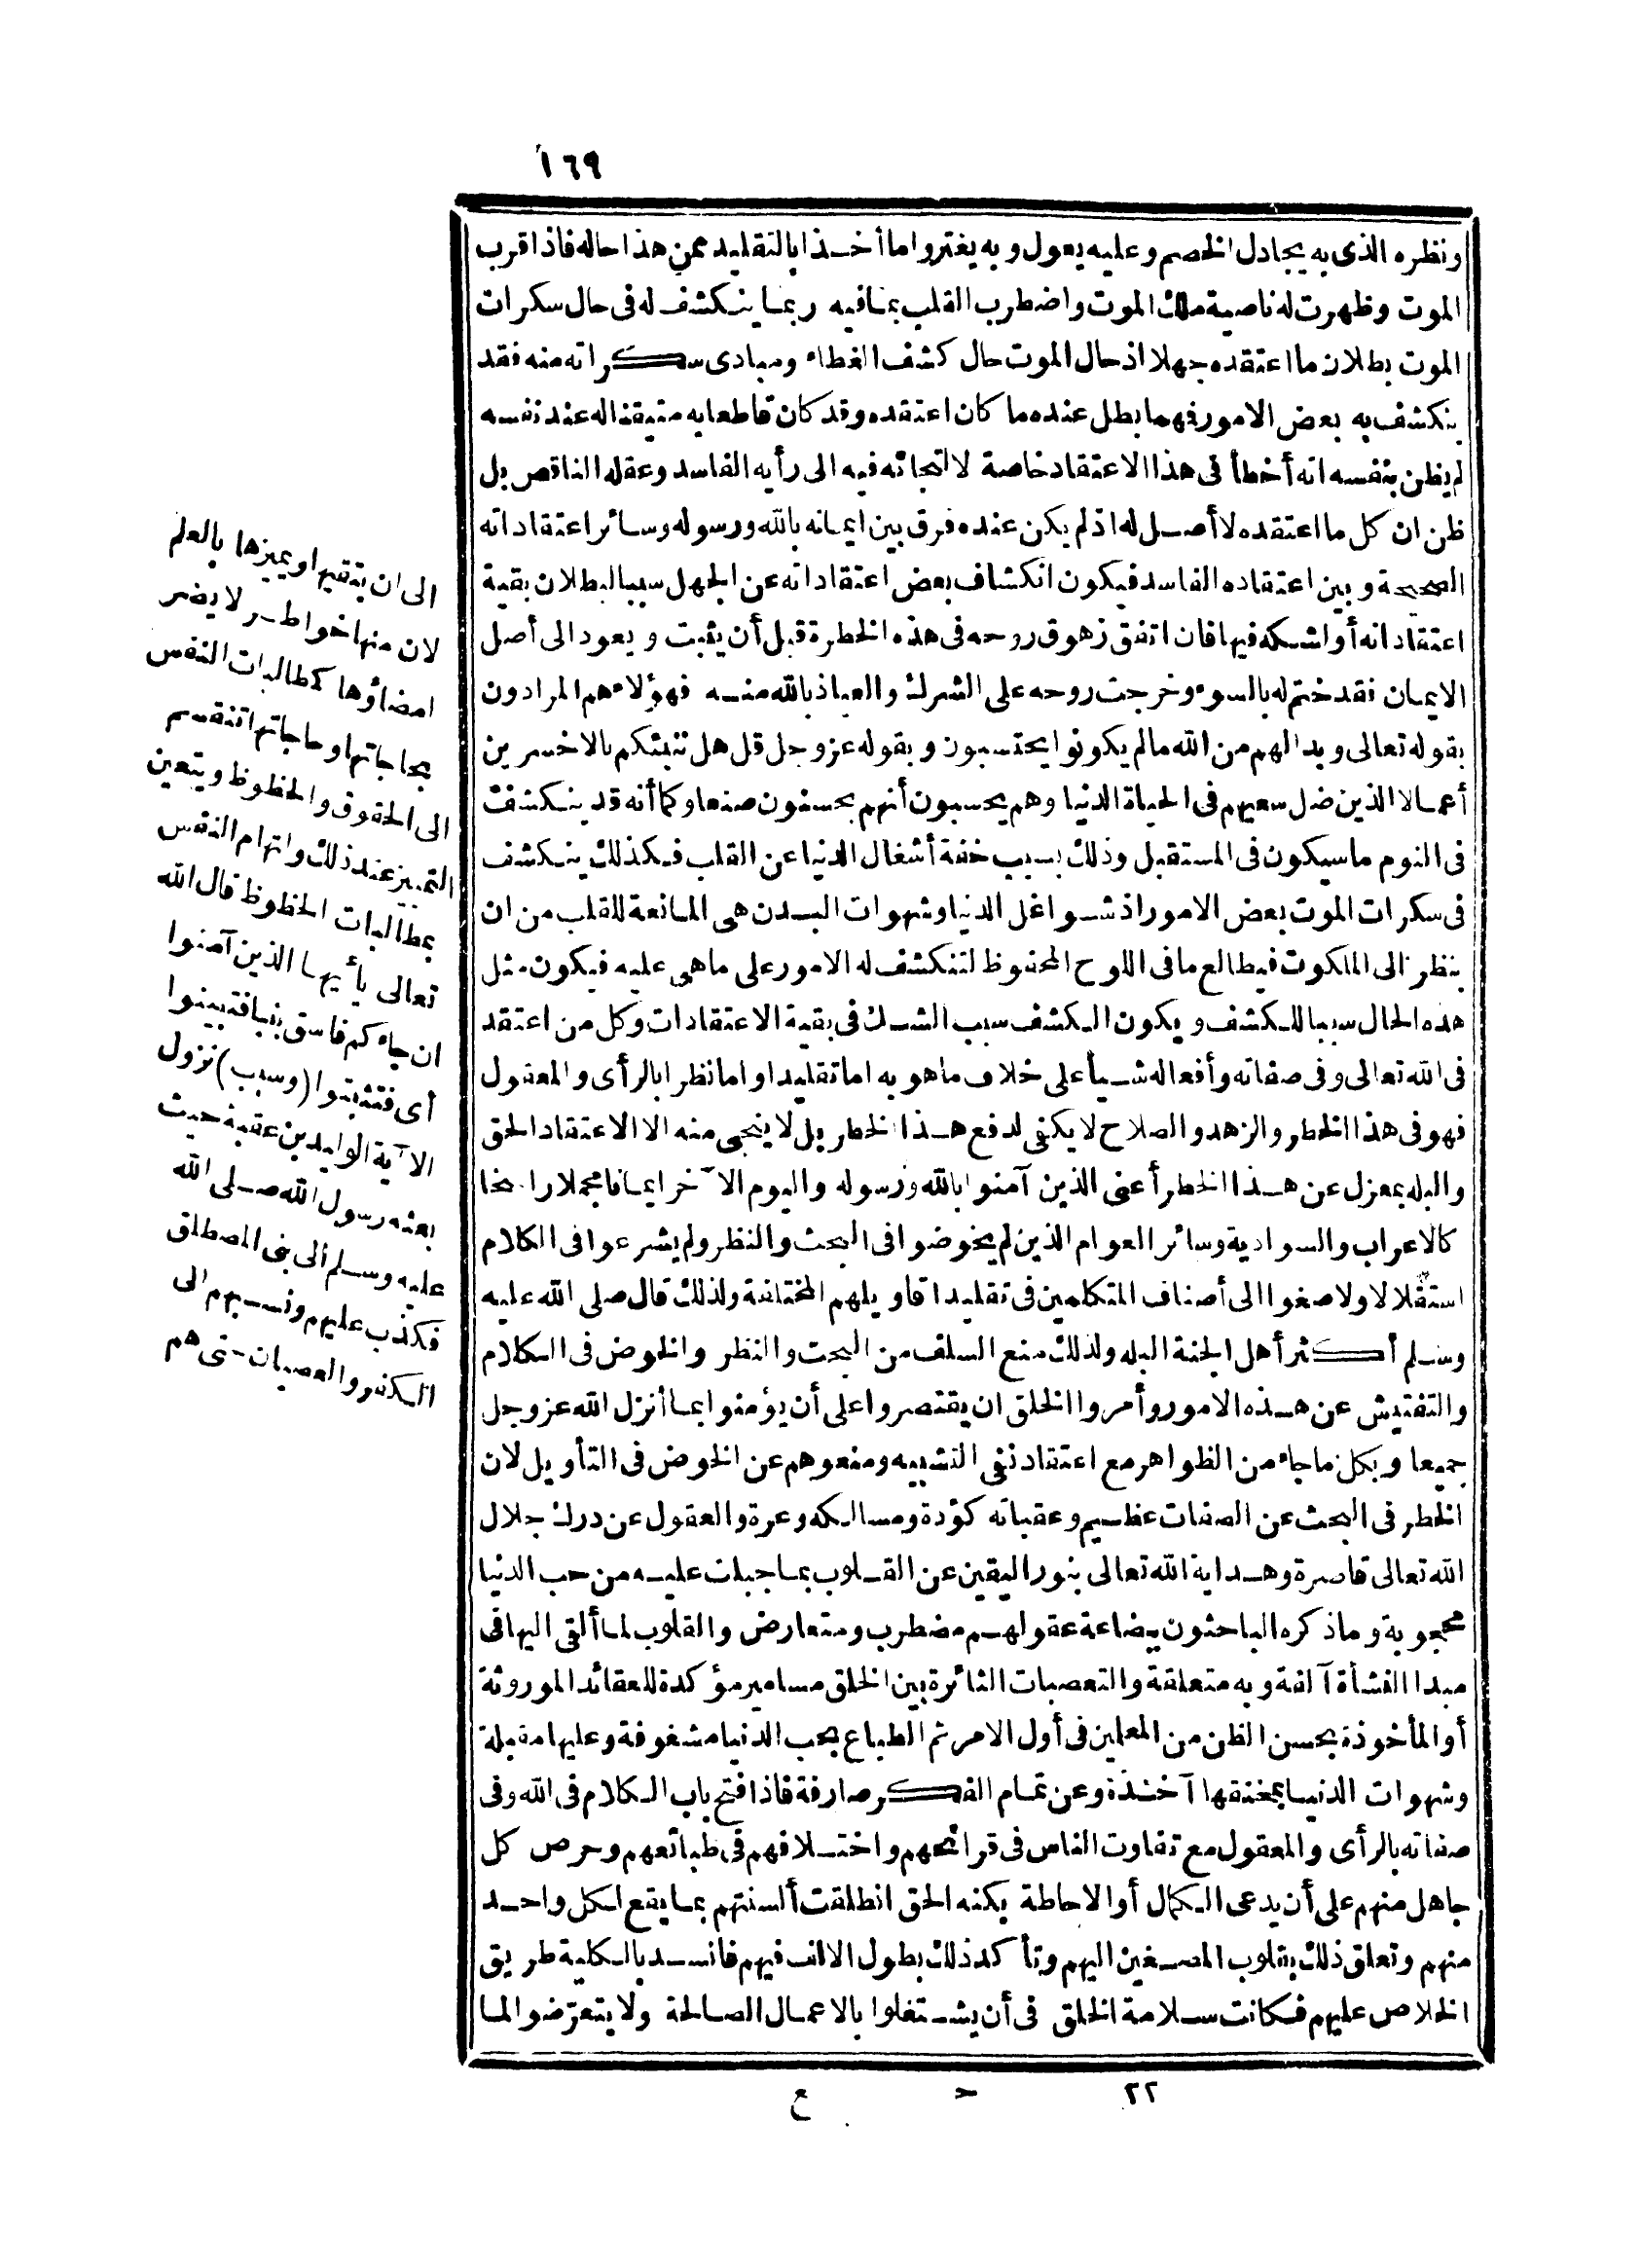 ١٦٩
ونظره الذى به يجادل الخصم وعليه يعول وبه يغتر واما أخذا بالتقليد ممن هذا حاله فاذا قرب
الموت وظهرت له ناصية ملك الموت واضطرب القلب بما فيه ربما ينكشف له فى حال سكرات
الموت بطلان ما اعتقده جهلا اذ حال الموت حال كشف الغطاء ومبادى سكراته منه فقد
ينكشف به بعض الامور فهما بطل عنده ما كان اعتقده وقد كان قاطعا به متيقنا له عند نفسه
لم يظن بنفسه انه أخطأ فى هذا الاعتقاد خاصة لالتجائه فيه الى رأيه الفاسد وعقله الناقص بل
ظن ان كل ما اعتقده لا أصل له اذ لم يكن عنده فرق بين ايمانه بالله ورسوله وسائر اعتقاداته
الصحيحة وبين اعتقاده الفاسد فيكون انكشاف بعض اعتقاداته عن الجهل سببا لبطلان بقية
اعتقاداته أو لشكه فيها فان اتفق زهوق روحه فى هذه الخطرة قبل أن يثبت ويعود الى أصل
الايمان فقد ختم له بالسوء وخرجت روحه على الشرك والعياذ بالله منه فهؤلاء هم المرادون
بقوله تعالى وبدا لهم من الله ما لم يكونوا يحتسبون وبقوله عز وجل قل هل ننبئكم بالاخسرين
أعمالا الذين ضل سعيهم فى الحياة الدنيا وهم يحسبون أنهم يحسنون صنعا وكما أنه قد ينكشف
فى النوم ما سيكون فى المستقبل وذلك بسبب خفة أشغال الدنيا عن القلب فكذلك ينكشف
فى سكرات الموت بعض الامور اذ شواغل الدنيا وشهوات البدن هى المانعة للقلب من ان
ينظر الى الملكوت فيطالع ما فى اللوح المحفوظ لتنكشف له الامور على ما هى عليه فيكون مثل
هذه الحال سببا للكشف ويكون الكشف سبب الشك فى بقية الاعتقادات وكل من اعتقد
فى الله تعالى وفى صفاته وأفعاله شيأ على خلاف ما هو به اما تقليدا واما نظرا بالرأى والمعقول
فهو فى هذا الخطر والزهد والصلاح لا يكفى لدفع هذا الخطر بل لا ينجى منه الا الاعتقاد الحق
والبله بمعزل عن هذا الخطر أعنى الذين آمنوا بالله ورسوله واليوم الآخر ايمانا مجملا راسخا
كالاعراب والسوادية وسائر العوام الذين لم يخوضوا فى البحث والنظر ولم يشرعوا فى الكلام
استقلالا ولا صغوا الى أصناف المتكلمين فى تقليد اقاويلهم المختلفة ولذلك قال صلى الله عليه
وسلم أكثر أهل الجنة البله ولذلك منع السلف من البحث والنظر والخوض فى الكلام
والتفتيش عن هذه الامور وأمروا الخلق ان يقتصروا على أن يؤمنوا بما أنزل الله عز وجل
جميعا وبكل ما جاء من الظواهر مع اعتقاد نفى التشبيه ومنعوهم عن الخوض فى التأويل لان
الخطر فى البحث عن الصفات عظيم وعقباته كؤدة ومسالكه وعرة والعقول عن درك جلال
الله تعالى قاصرة وهداية الله تعالى بنور اليقين عن القلوب بما جبلت عليه من حب الدنيا
محجوبة وما ذكره الباحثون ببضاعة عقولهم مضطرب ومتعارض والقلوب لما ألقى اليها فى
مبدا النشأة آلفة وبه متعلقة والتعصبات الثائرة بين الخلق مسامير مؤكدة للعقائد الموروثة
أو المأخوذة بحسن الظن من المعلمين فى أول الامر ثم الطباع بحب الدنيا مشغوفة وعليها مقبلة
وشهوات الدنيا بمخنقها آخذة وعن تمام الفكر صارفة فاذا فتح باب الكلام فى الله وفى
صفاته بالرأى والمعقول مع تفاوت الناس فى قرائحهم واختلافهم فى طبائعهم وحرص كل
جاهل منهم على أن يدعى الكمال أو الاحاطة بكنه الحق انطلقت ألسنتهم بما يقع لكل واحد
منهم وتعلق ذلك بقلوب المصغين اليهم وتأكد ذلك بطول الالف فيهم فانسد بالكلية طريق
الخلاص عليهم فكانت سلامة الخلق فى أن يشتغلوا بالاعمال الصالحة ولا يتعرضوا لما
الى ان يتقيها ويميزها بالعلم
لان منها خواطر لا يضر
امضاؤها كمطالبات النفس
بحاجاتها وحاجاتها تنقسم
الى الحقوق والحظوظ ويتعين
التمييز عند ذلك واتهام النفس
بمطالبات الحظوظ قال الله
تعالى يا أيها الذين آمنوا
ان جاءكم فاسق بنبا فتبينوا
أى فتثبتوا (وسبب) نزول
الآية الوليد بن عقبة حيث
بعثه رسول الله صلى الله
عليه وسلم الى بنى المصطلق
فكذب عليهم ونسبهم الى
الكفر والعصيان حتى هم
٢٢ ح ع